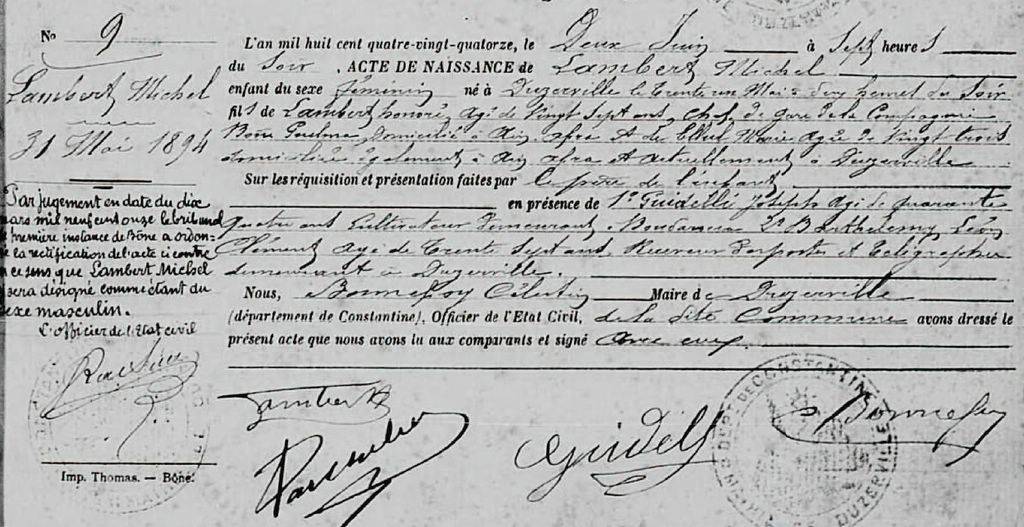 N° 9
Lambert Michel
31 Mai 1894
Par jugement en date du dix
mars mil neuf cent onze le tribunal
de première instance de Bône a ordon-
né la rectification de l'acte ci contre
en ce sens que Lambert Michel
sera désigné comme étant du
sexe masculin.
L'officier de l'Etat civil
Imp. Thomas. — Bône.
L'an mil huit cent quatre-vingt-quatorze, le Deux Juin à Sept heures
du Soir, ACTE DE NAISSANCE de Lambert Michel
enfant du sexe féminin né à Duzerville le trente un Mai à heures du Soir
fils de Lambert honoré, agé de Vingt Sept ans, chef de gare de la Compagnie
Bône Guelma, domicilié à Ain Et de Marie Agée de Vingt trois
domiciliée également à Ain et actuellement à Duzerville
Sur les réquisition et présentation faites par le père de l'enfant
en présence de 1° Guidelli Joseph Agé de quarante
quatre ans Cultivateur demeurant 2° Barthélemy Léon
Clément Agé de trente Sept ans Receveur des postes et télégraphes
demeurant à Duzerville.
Nous, Bonnefoy Célestin Maire de Duzerville
(département de Constantine), Officier de l'Etat Civil, de la dite Commune avons dressé le
présent acte que nous avons lu aux comparants et signé avec eux.
Lambert
Guidelli
Bonnefoy